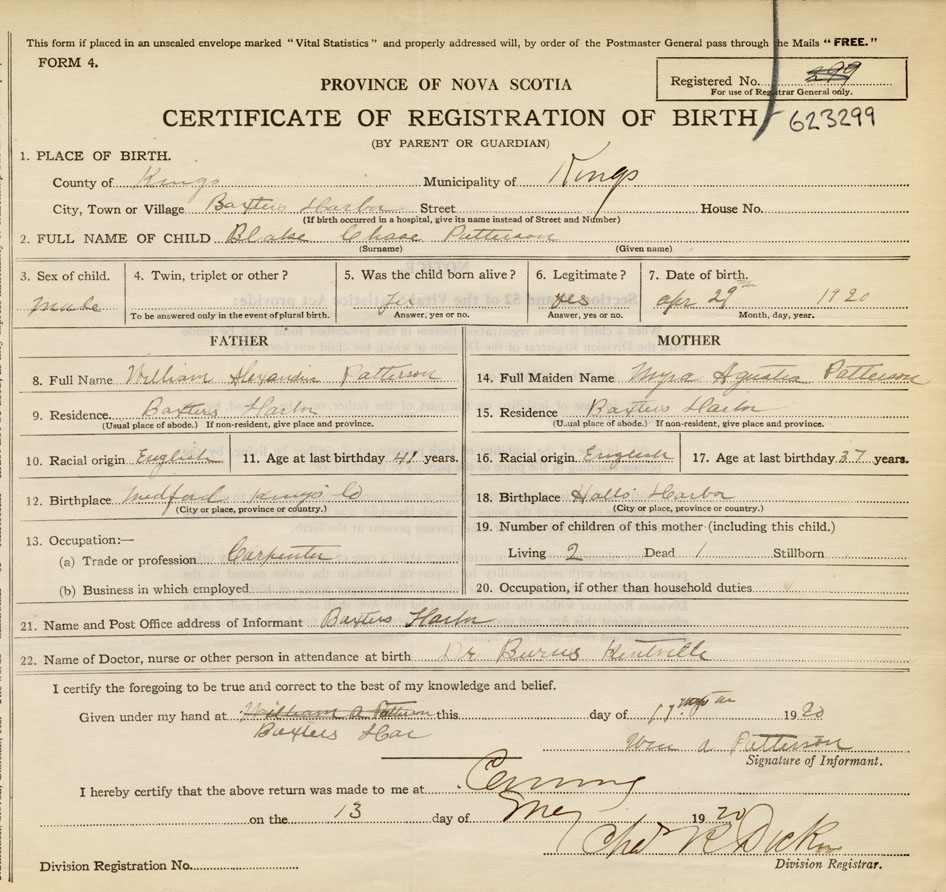 This form if placed in an unsealed envelope marked "Vital Statistics" and properly addressed will, by order of the Postmaster General pass through the Mails "FREE."
FORM 4.
PROVINCE OF NOVA SCOTIA
Registered No. 299
For use of Registrar General only.
CERTIFICATE OF REGISTRATION OF BIRTH
623299
(BY PARENT OR GUARDIAN)
1. PLACE OF BIRTH.
County of Kings Municipality of Kings
City, Town or Village Baxters Harbor Street House No.
(If birth occurred in a hospital, give its name instead of Street and Number)
2. FULL NAME OF CHILD Blake Chase Patterson
(Surname) (Given name)
3. Sex of child. 4. Twin, triplet or other? 5. Was the child born alive? 6. Legitimate? 7. Date of birth.
male yes yes apr 29th 1920
To be answered only in the event of plural birth. Answer, yes or no. Answer, yes or no. Month, day, year.
FATHER
8. Full Name William Alexander Patterson
9. Residence. Baxters Harbor
(Usual place of abode.) If non-resident, give place and province.
10. Racial origin English 11. Age at last birthday 41 years.
12. Birthplace Medford Kings Co
(City or place, province or country.)
13. Occupation:—
(a) Trade or profession Carpenter
(b) Business in which employed
MOTHER
14. Full Maiden Name Myra Patterson
15. Residence Baxters Harbor
(Usual place of abode.) If non-resident, give place and province.
16. Racial origin English 17. Age at last birthday 37 years.
18. Birthplace Halls Harbor
(City or place, province or country.)
19. Number of children of this mother (including this child.)
Living 2 Dead 1 Stillborn
20. Occupation, if other than household duties.
21. Name and Post Office address of Informant Baxters Harbor
22. Name of Doctor, nurse or other person in attendance at birth Dr Burns Kentville
I certify the foregoing to be true and correct to the best of my knowledge and belief.
Given under my hand at William A Patterson this day of 1920
Baxters Har
Wm A Patterson
Signature of Informant.
I hereby certify that the above return was made to me at
on the 13 day of May 1920
Division Registration No. Division Registrar.